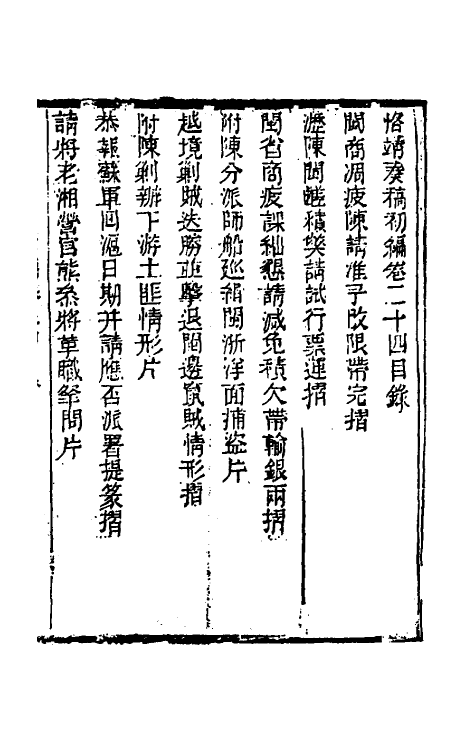 恪靖奏稿初編卷二十四目錄
閩商凋疲陳請准予改限帶完摺
瀝陳閩鹺積獘請試行票運摺
閩省商疲課絀懇請減免積欠帶輸銀兩摺
附陳分派師船廵緝閩浙洋面捕盜片
越境剿賊迭勝並擊退閩邊竄賊情形摺
附陳剿辦下游土匪情形片
恭報蘇軍囘滬日期幷請應否派署提篆摺
請將老湘營官熊叅將革職拏問片